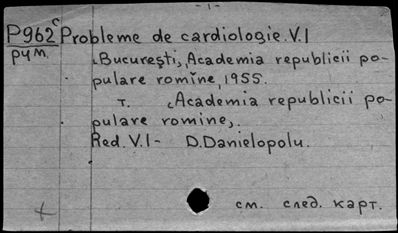 -1-
P962c Probleme de cardiologie. V.I
рум.
București, Academia republicii po-
pulare romîne, 1955.
т. (Academia republicii po-
pulare romine).
Red. V.I- D.Danielopolu.
+ см. след. карт.